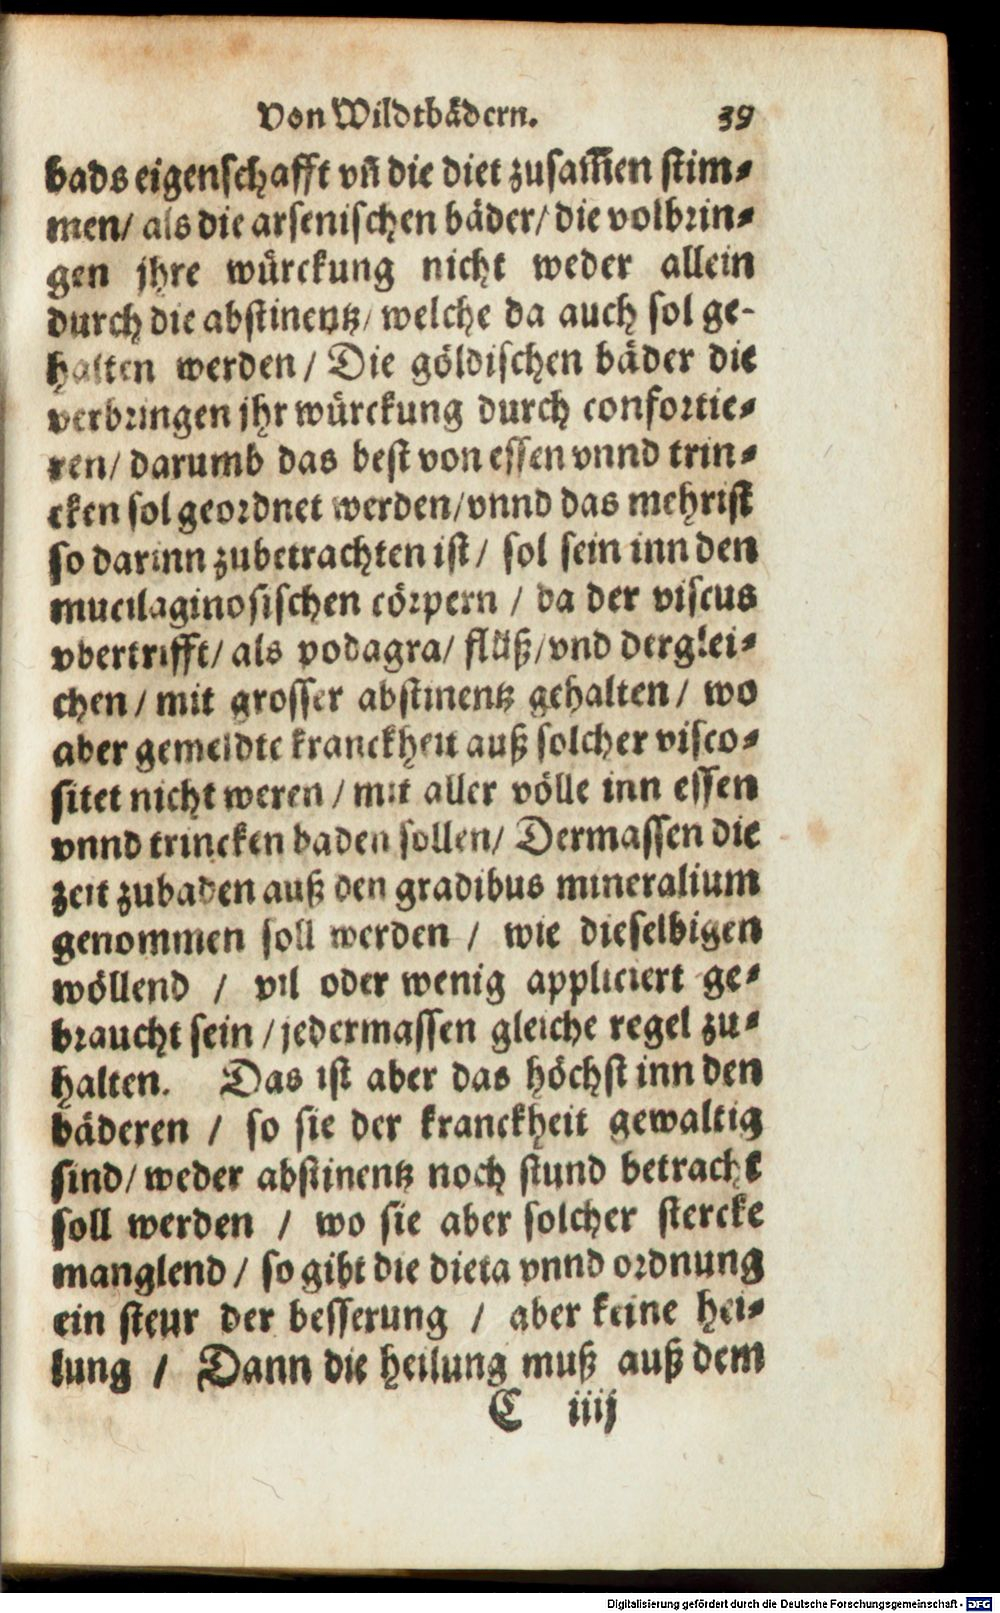 Von Wildtbädern. 39
bads eigenschafft vn̄ die diet zusam̄en stim-
men/ als die arsenischen bäder/ die volbrin-
gen jhre würckung nicht weder allein
durch die abstinentz/ welche da auch sol ge-
halten werden / Die göldischen bäder die
verbringen jhr würckung durch confortie-
ren/ darumb das best von essen vnnd trin-
cken sol geordnet werden/ vnnd das mehrist
so darinn zubetrachten ist / sol sein inn den
mucilaginosischen cörpern / da der viscus
vbertrifft/ als podagra/ flüß/ vnd derglei-
chen / mit grosser abstinentz gehalten / wo
aber gemeldte kranckheit auß solcher visco-
sitet nicht weren / mit aller völle inn essen
vnnd trincken baden sollen/ Dermassen die
zeit zubaden auß den gradibus mineralium
genommen soll werden / wie dieselbigen
wöllend / vil oder wenig appliciert ge-
braucht sein / jedermassen gleiche regel zu-
halten. Das ist aber das höchst inn den
bäderen / so sie der kranckheit gewaltig
sind/ weder abstinentz noch stund betracht
soll werden / wo sie aber solcher stercke
manglend / so gibt die dieta vnnd ordnung
ein steur der besserung / aber keine hei-
lung / Dann die heilung muß auß dem
C iiij
Digitalisierung gefördert durch die Deutsche Forschungsgemeinschaft - DFG